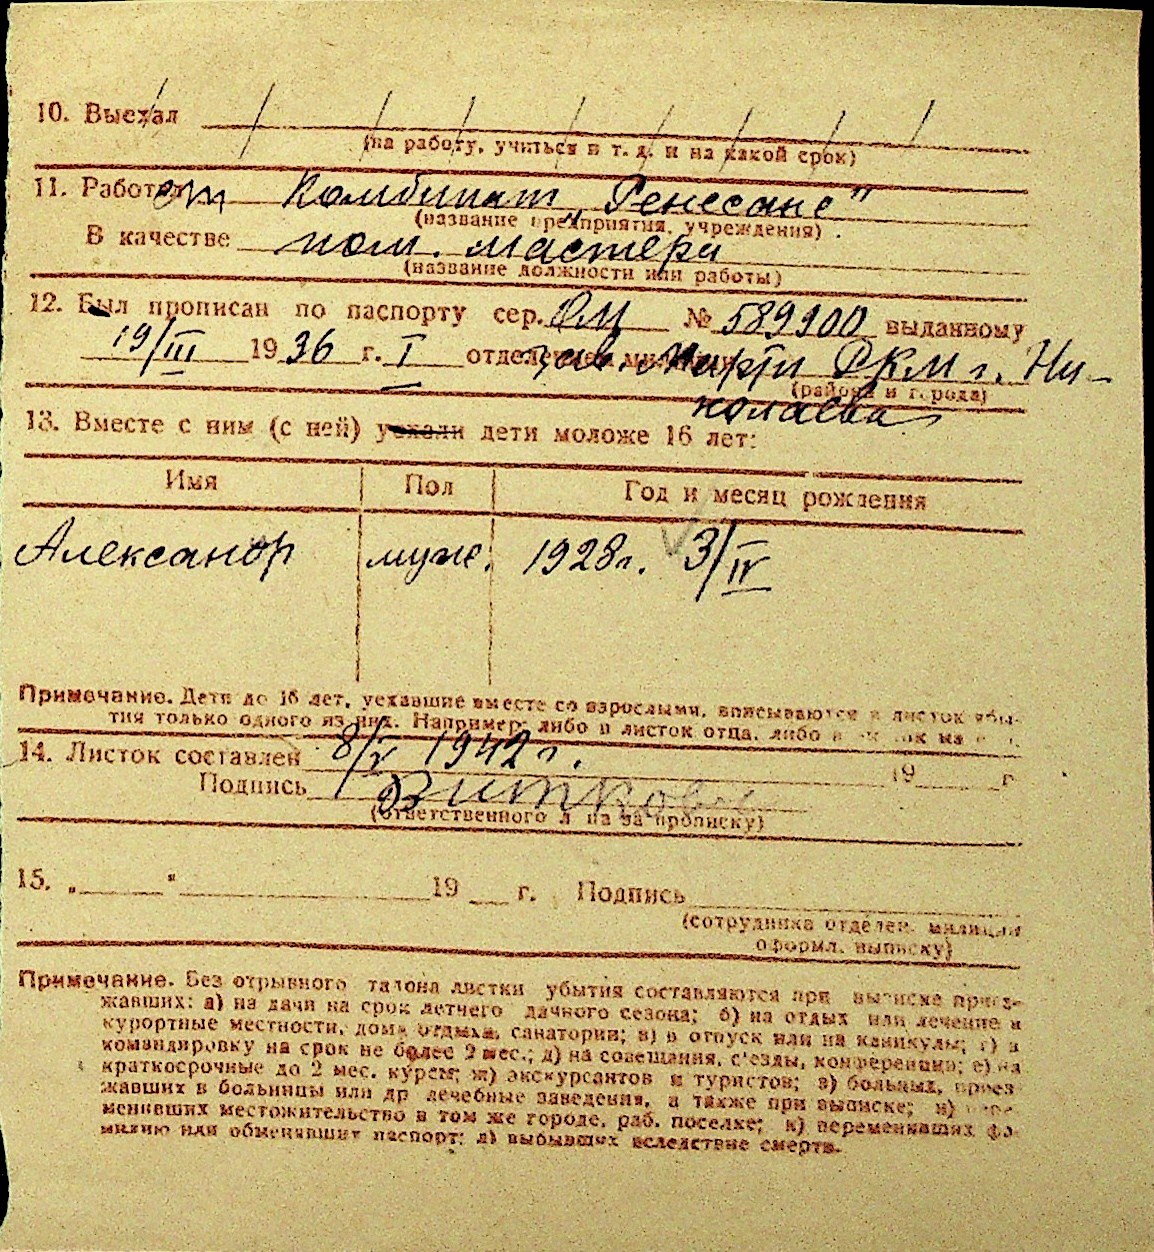 10. Выехал
(на работу, учиться и т. д. и на какой срок)
11. Работал Комбинат „Ренесанс"
(название предприятия, учреждения)
В качестве пом. мастера
(название должности или работы)
12. Был прописан по паспорту сер. № 589900 выданному
19/III 1936 г. I отделен РКМ г. Ни-
(района и города)
колаева
13. Вместе с ним (с ней) уехали дети моложе 16 лет:
Имя Пол Год и месяц рождения
Александр муж. 1928 г. 3/IV
Примечание. Дети до 16 лет, уехавшие вместе со взрослыми, вписываются в листок убы-
тия только одного из них. Например: либо в листок отца, либо в
14. Листок составлен 8/V 1942 г. 19 г.
Подпись
(ответственного л па за прописку)
15. „ " 19 г. Подпись
(сотрудника отделен. милиции
оформл. выписку)
Примечание. Без отрывного талона листки убытия составляются при выписке приез-
жавших: а) на дачи на срок летнего дачного сезона; б) на отдых или лечение в
курортные местности, дома отдыха, санатории; в) в отпуск или на каникулы; г) в
командировку на срок не более 2 мес.; д) на совещания, с'езды, конференции; е) на
краткосрочные до 2 мес. курсы; ж) экскурсантов и туристов; з) больных, приез
жавших в больницы или др лечебные заведения, а также при выписке; и) пере-
менивших местожительство в том же городе, раб. поселке; к) переменивших фа-
милию или обменявших паспорт; л) выбывших вследствие смерти.